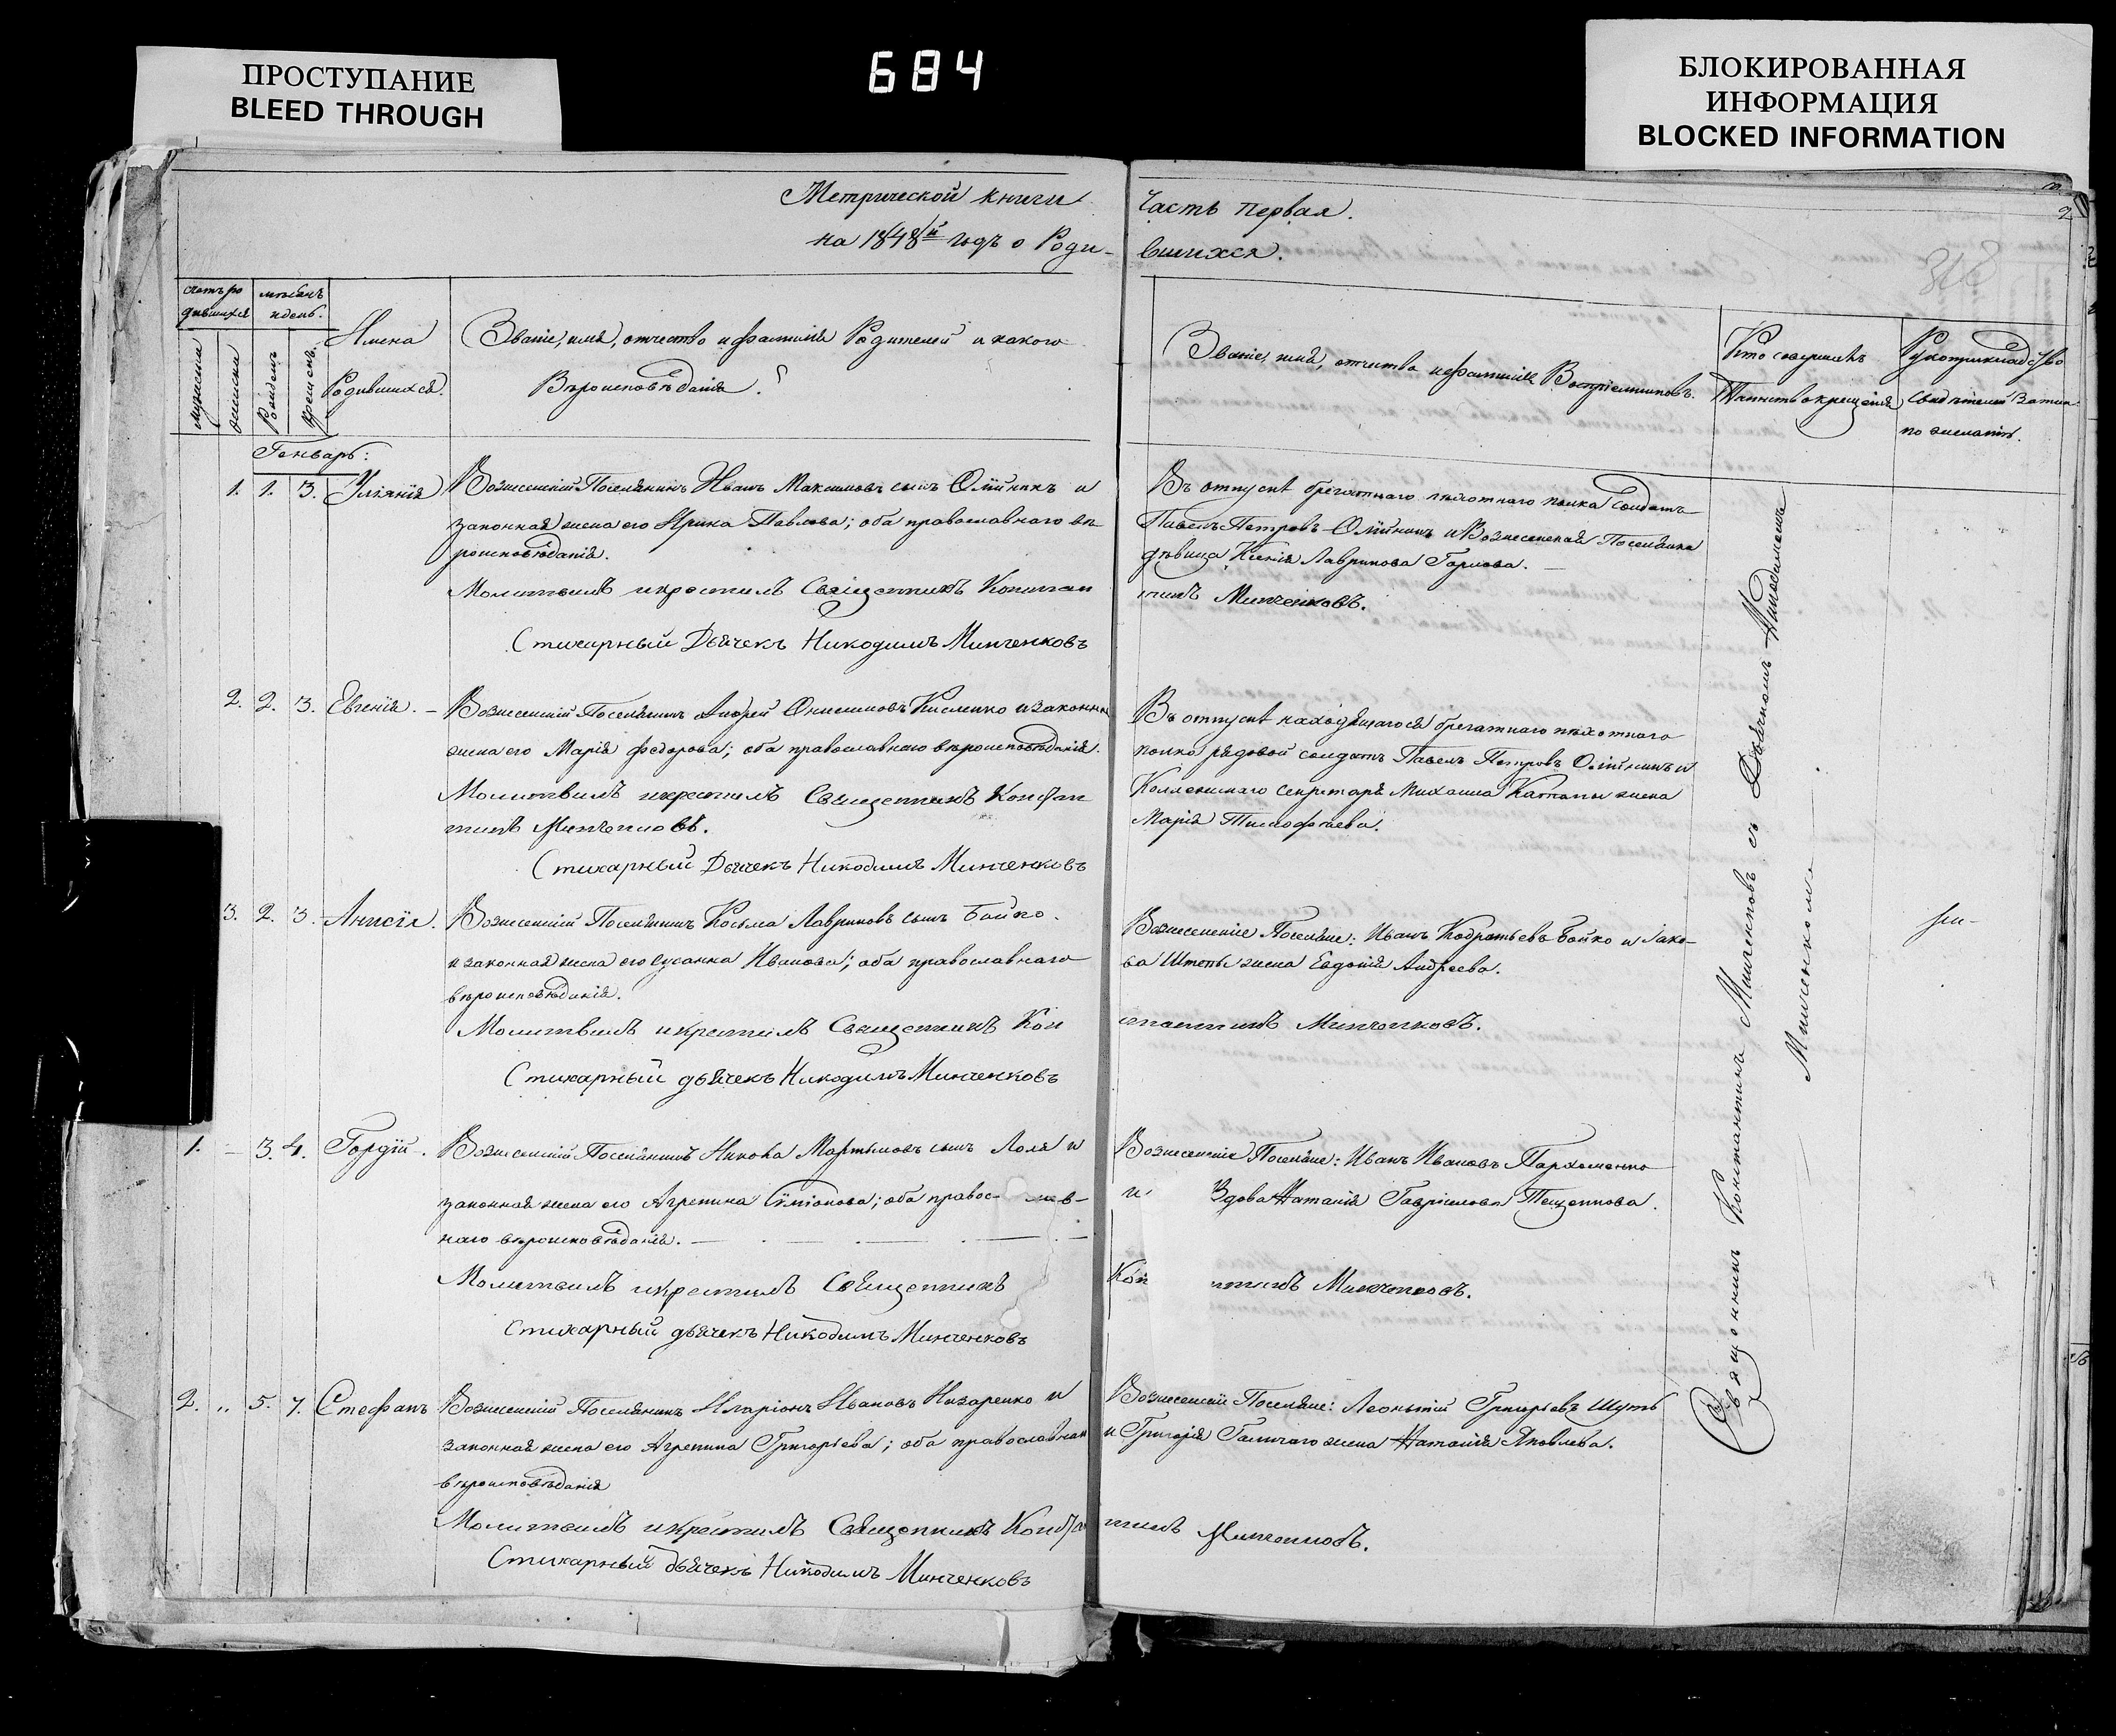 ПРОСТУПАНИЕ
BLEED THROUGH
684
БЛОКИРОВАННАЯ
ИНФОРМАЦИЯ
BLOCKED INFORMATION
Метрической книги
на 1848й годъ о Роди-
Часть первая.
вшихся.
318
счетъ ро
дившихся
мѣсяцъ
и день.
мужеска
женска
Рожден.
крещен.
Имена
Родившихся.
Званіе, имя, отчество и фамилія Родителей и какого
Вѣроисповѣданія.
Званіе, имя, отчество и фамилія Воспріемниковъ.
Кто совершалъ
Таинство крещенія
Рукоприкладство
свидѣтелей Записи
по желанію.
Генварь:
1. 1. 3. Уліянія
Вознесенскій Поселянинъ Иванъ Максимовъ сынъ Олійникъ и
законная жена его Ирина Павлова; оба православнаго вѣ
роисповѣданія.
Молитвилъ и крестилъ Священникъ Констан
Стихарный Дьячекъ Никодимъ Минченковъ
Въ отпуску пѣхотнаго полка Солдатъ
Павелъ Петровъ Олійникъ и Вознесенская Поселянка
дѣвица Ксенія Лавринова
тинъ Минченковъ.
2. 2. 3. Евгенія. –
Вознесенскій Поселянинъ Андрей Онисимовъ Кисленко и законна
жена его Марія Федорова; оба православнаго вѣроисповѣданія.
Молитвилъ и крестилъ Священникъ Констан
тинъ Минченковъ.
Стихарный Дьячекъ Никодимъ Минченковъ
Въ отпуску находящагося пѣхотнаго
полка рядовой солдатъ Павелъ Петровъ Олійникъ и
Коллежскаго Секретаря Михаила жена
Марія Тимофѣева.
3. 2. 3. Анисія.
Вознесенскій Поселянинъ Косьма Лавриновъ сынъ Бойко.
и законная жена его Сусанна Иванова; оба православнаго
вѣроисповѣданія.
Молитвилъ и крестилъ Священникъ Кон
Стихарный дьячекъ Никодимъ Минченковъ
Вознесенскіе Поселяне: Иванъ Кодратьевъ Бойко и Іако-
ва Штепы жена Евдокія Андреева.
стантинъ Минченковъ.
1. – 3. 4. Гордій.
Вознесенскій Поселянинъ Мартыновъ сынъ Лоля и
законная жена его Агрепина; оба правос- лав-
наго вѣроисповѣданія.
Молитвилъ и крестилъ Священникъ
Стихарный дьячекъ Никодимъ Минченковъ
Вознесенскіе Поселяне: Иванъ Ивановъ Пархоменко
и Вдова Наталія Гавріилова
Кон тинъ Минченковъ.
2. „ 5. 7. Стефанъ
Вознесенскій Поселянинъ Иларіонъ Ивановъ Назаренко и
законная жена его Агрепина Григорьева; оба православнаго
вѣроисповѣданія
Молитвилъ и крестилъ Священникъ Конста
Стихарный дьячекъ Никодимъ Минченковъ
Вознесенскіе Поселяне: Леонтій Григорьевъ Шуть
и Григорія жена Наталія Яковлева.
тинъ Минченковъ.
Священникъ Константинъ Минченковъ съ Дьячкомъ Никодимомъ
Минченкомъ